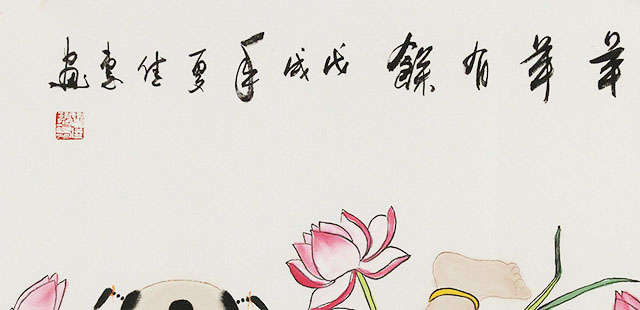 年年有餘戊戌年夏佳惠畫